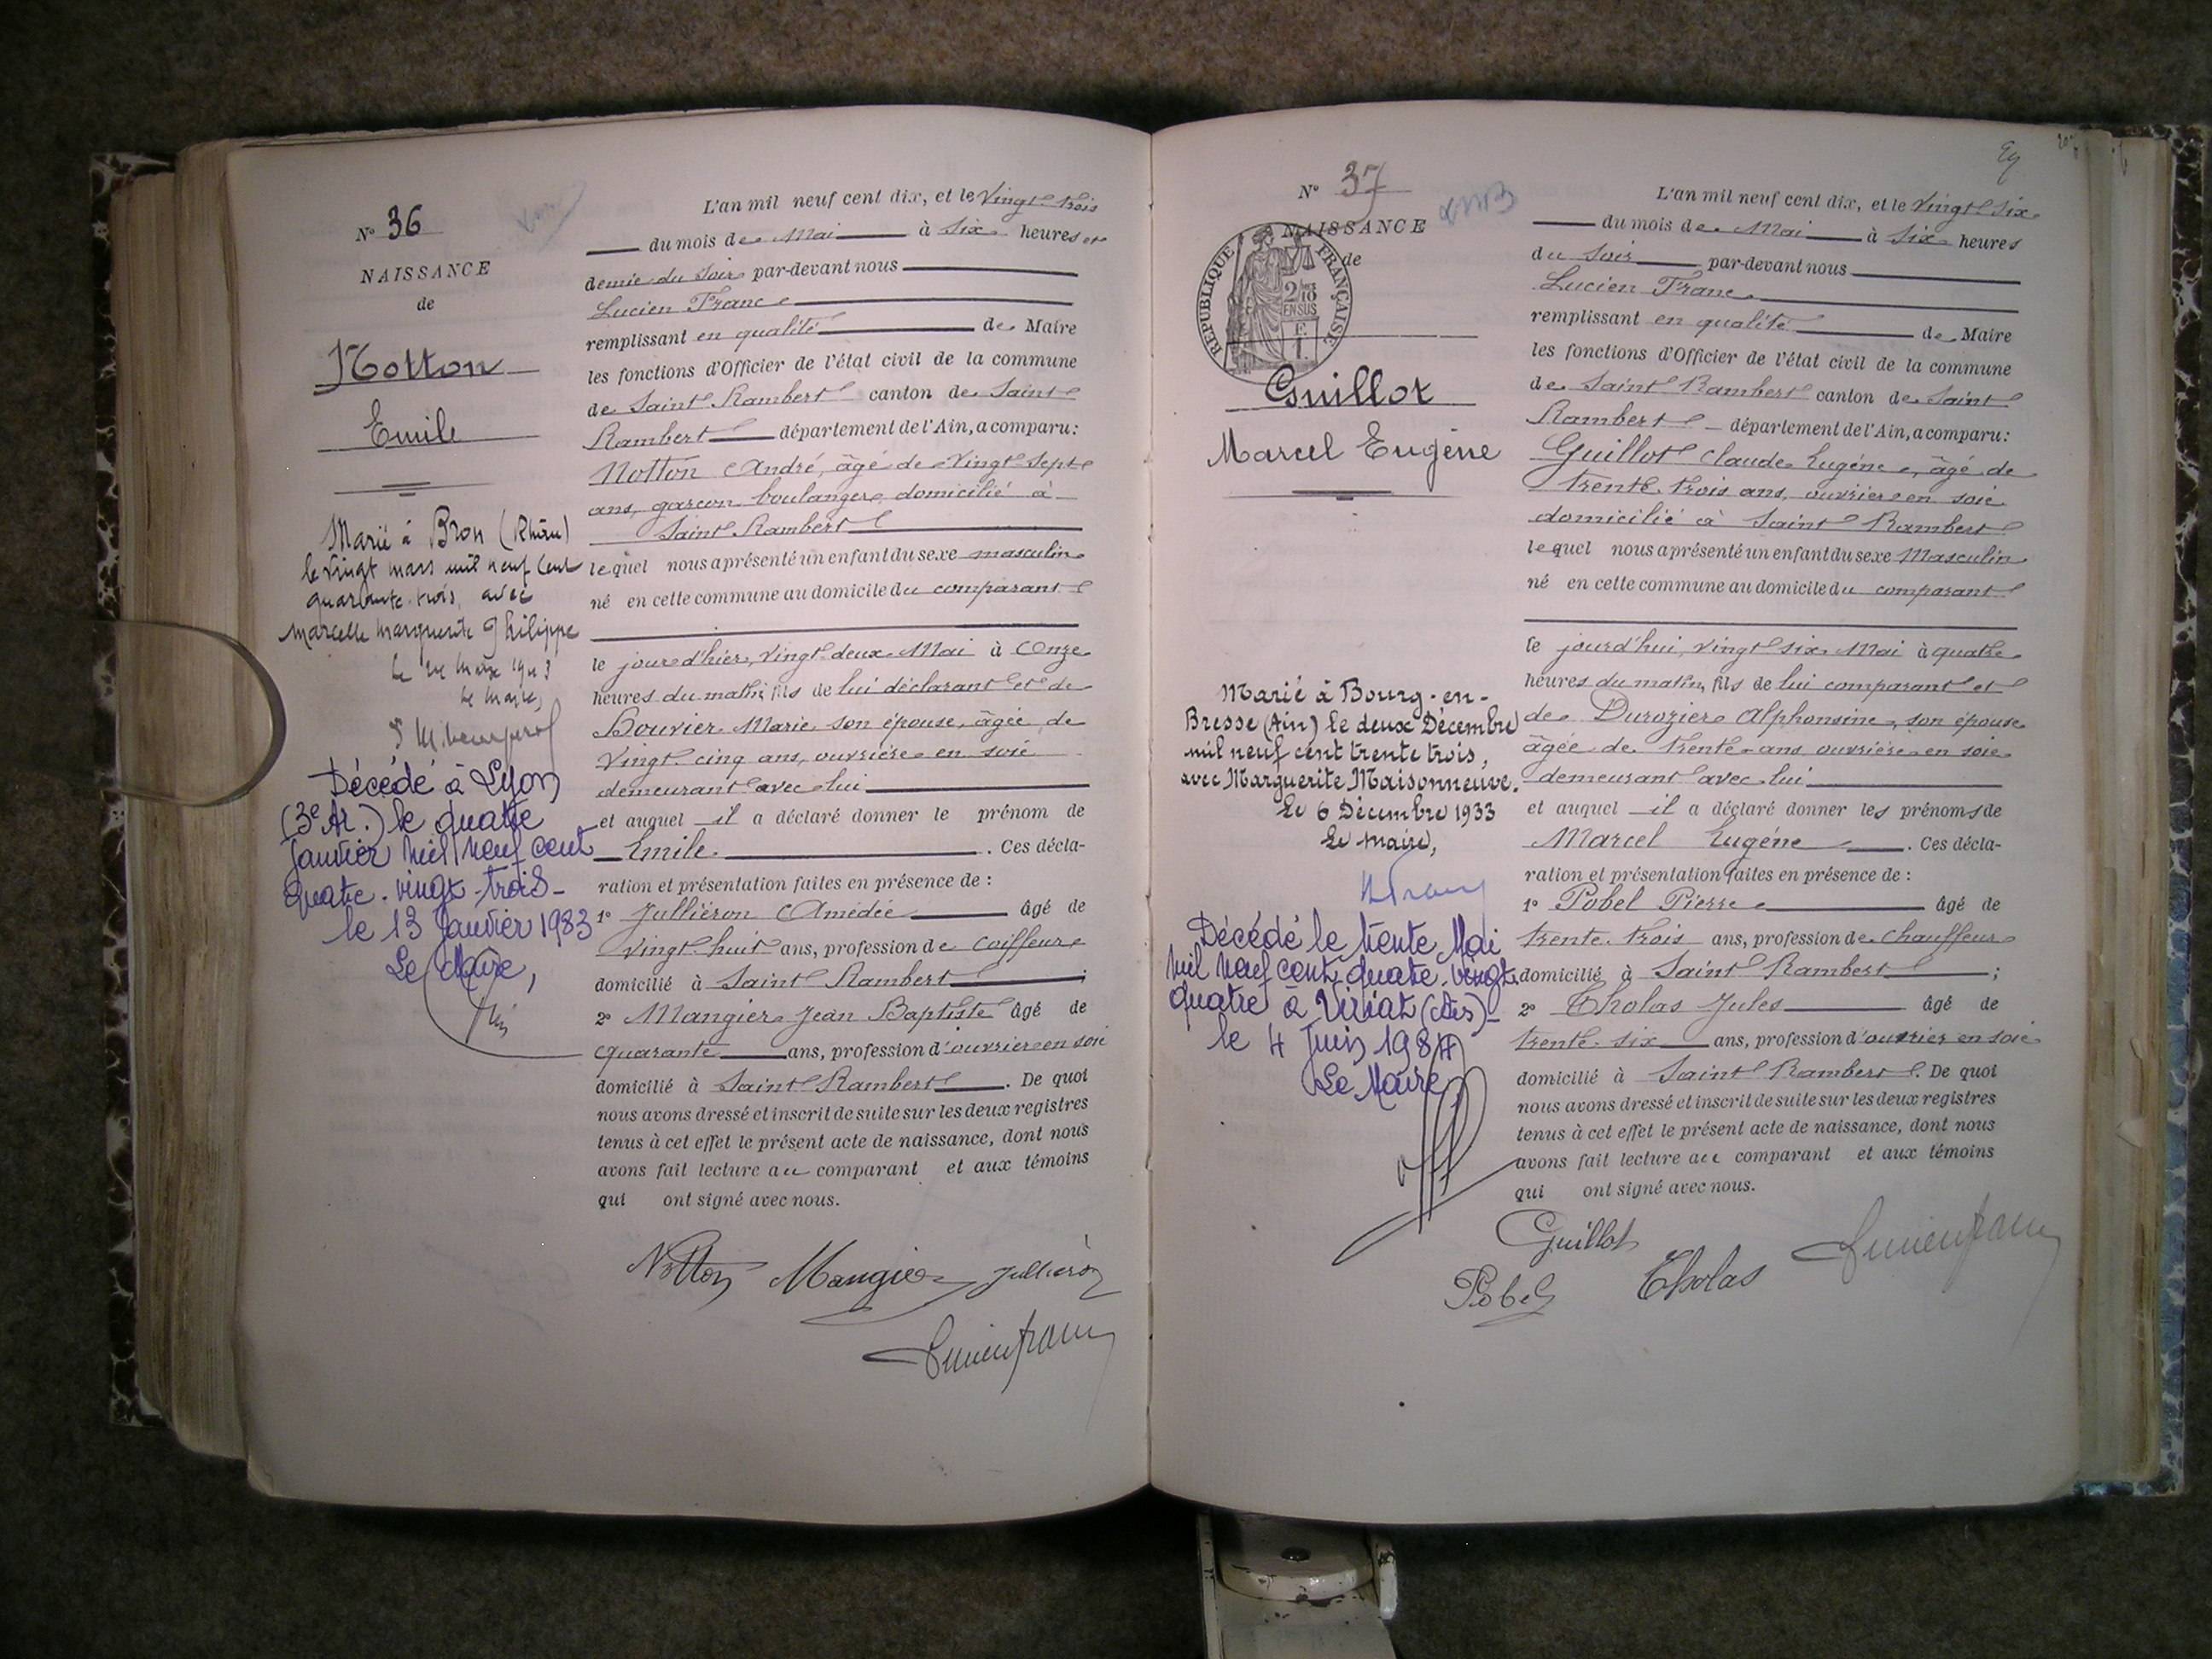 N° 36
NAISSANCE
de
Notton
Emile
Marié à Bron (Rhône)
le vingt mars mil neuf cent
quarante trois, avec
Marcelle Marguerite Philippe
Le Maire,
Décédé à Lyon
(3e Ar.) le quatre
Janvier mil neuf cent
quatre-vingt-trois-
le 13 Janvier 1983
Le Maire,
L'an mil neuf cent dix, et le Vingt trois
du mois de Mai à Six heures et
demie du Soir par-devant nous
Lucien Franc
remplissant en qualité de Maire
les fonctions d'Officier de l'état civil de la commune
de Saint Rambert canton de Saint
Rambert département de l'Ain, a comparu:
Notton André, âgé de Vingt Sept
ans, garçon boulanger domicilié à
Saint Rambert
lequel nous a présenté un enfant du sexe masculin
né en cette commune au domicile du comparant
le jour d'hier, Vingt deux Mai à Onze
heures du matin fils de lui déclarant et de
Bouvier Marie son épouse, âgée de
Vingt cinq ans, ouvrière en soie
demeurant avec lui
et auquel il a déclaré donner le prénom de
Emile. Ces décla-
ration et présentation faites en présence de :
1° Julliéron Amédée âgé de
Vingt huit ans, profession de Coiffeur
domicilié à Saint Rambert ;
2° Mangier Jean Baptiste âgé de
quarante ans, profession d'ouvrier en soie
domicilié à Saint Rambert. De quoi
nous avons dressé et inscrit de suite sur les deux registres
tenus à cet effet le présent acte de naissance, dont nous
avons fait lecture au comparant et aux témoins
qui ont signé avec nous.
Notton Mangier Julliéron
Lucien Franc
N° 37
NAISSANCE
de
RÉPUBLIQUE FRANÇAISE
2/10 EN SUS
F.
1.
Guillot
Marcel Eugène
Marié à Bourg-en-
Bresse (Ain) le deux Décembre
mil neuf cent trente trois,
avec Marguerite Maisonneuve.
Le 6 Décembre 1933
Le Maire,
Décédé le trente Mai
mil neuf cent quatre-vingt
quatre à Viriat (Ain)-
le 4 Juin 1984
Le Maire,
L'an mil neuf cent dix, et le Vingt Six
du mois de Mai à Six heures
du Soir par-devant nous
Lucien Franc
remplissant en qualité de Maire
les fonctions d'Officier de l'état civil de la commune
de Saint Rambert canton de Saint
Rambert département de l'Ain, a comparu:
Guillot Claude Eugène, âgé de
trente trois ans, ouvrier en soie
domicilié à Saint Rambert
lequel nous a présenté un enfant du sexe Masculin
né en cette commune au domicile du comparant
le jourd'hui, Vingt six Mai à quatre
heures du matin, fils de lui comparant et
de Durozier Alphonsine, son épouse
âgée de trente ans ouvrière en soie
demeurant avec lui
et auquel il a déclaré donner les prénoms de
Marcel Eugène. Ces décla-
ration et présentation faites en présence de :
1° Pobel Pierre âgé de
trente trois ans, profession de Chauffeur
domicilié à Saint Rambert ;
2° Tholas Jules âgé de
trente six ans, profession d'ouvrier en soie
domicilié à Saint Rambert. De quoi
nous avons dressé et inscrit de suite sur les deux registres
tenus à cet effet le présent acte de naissance, dont nous
avons fait lecture au comparant et aux témoins
qui ont signé avec nous.
Guillot
Pobel Tholas Lucien Franc